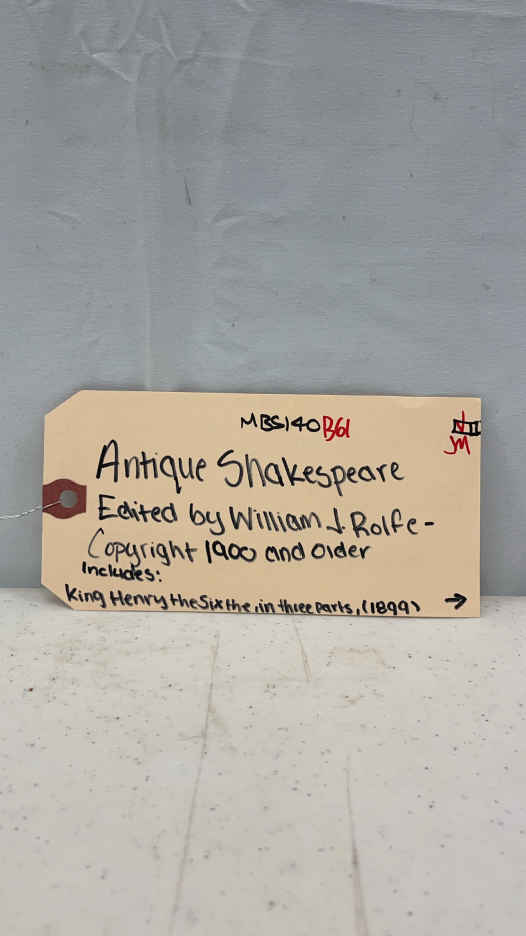 MBS140 B61
JM
Antique Shakespeare
Edited by William J. Rolfe-
Copyright 1900 and Older
Includes:
King Henry the Sixthe, in three parts, (1899) →